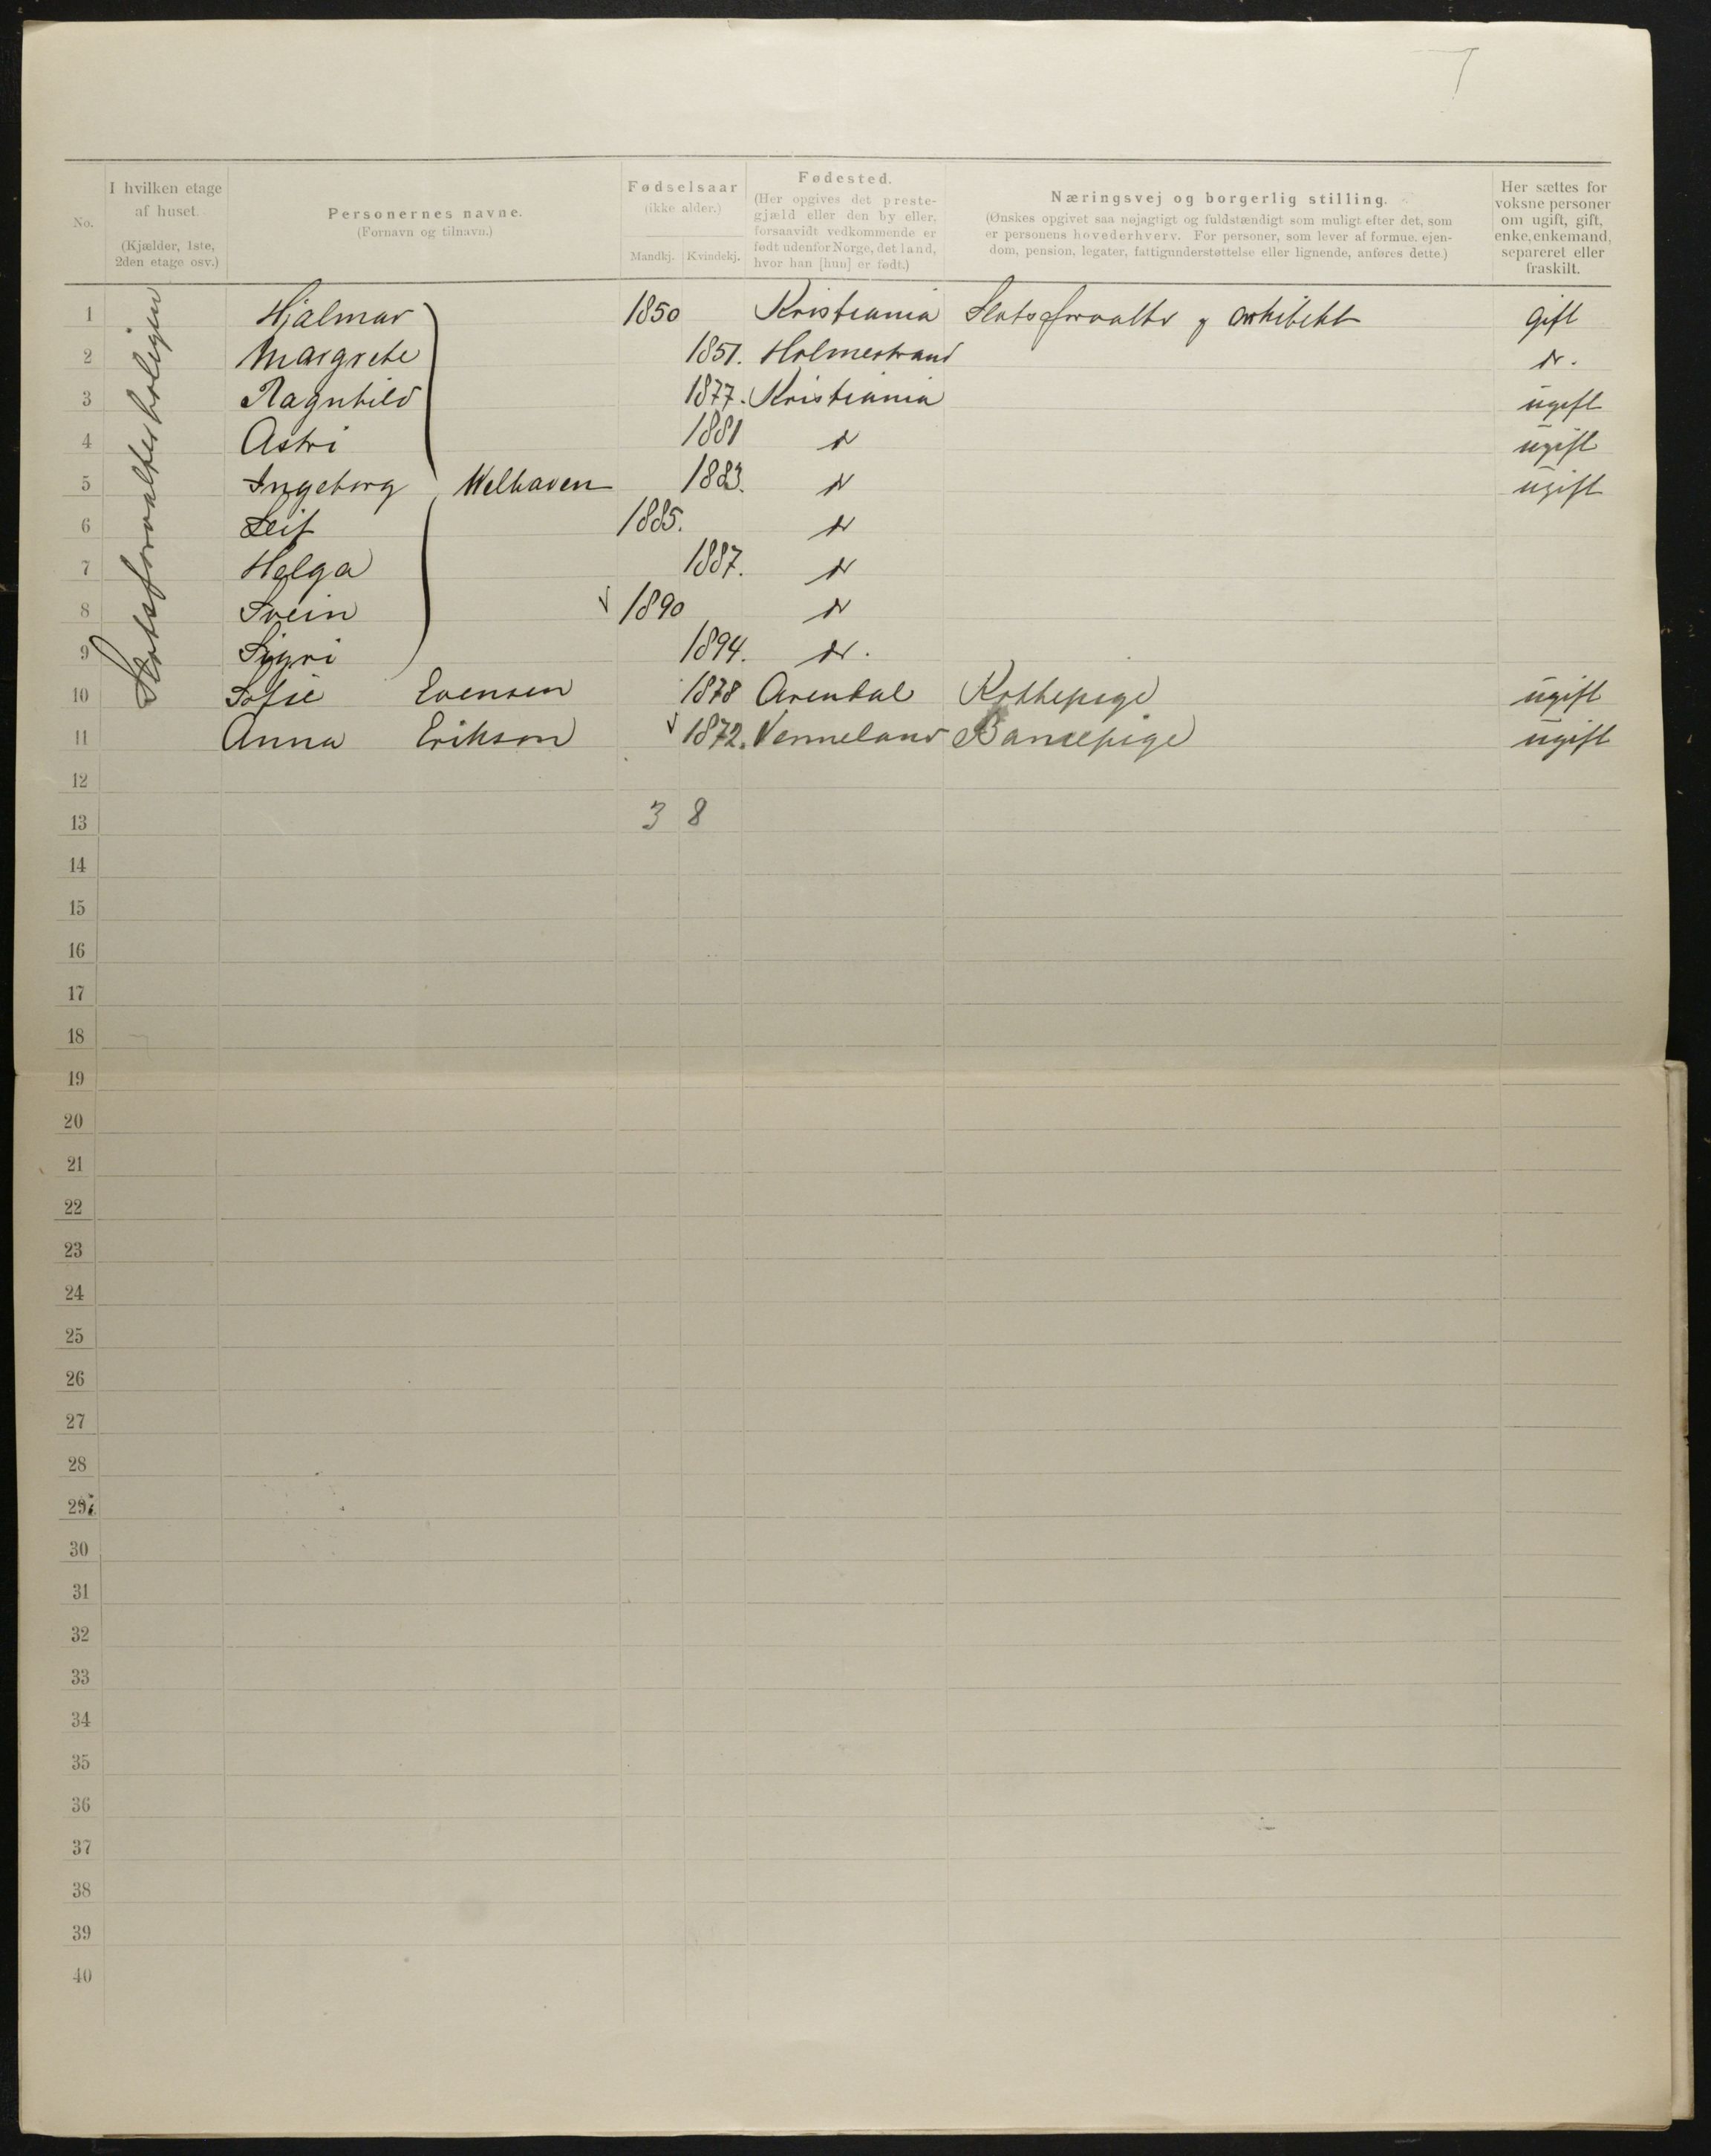 No.
I hvilken etage
af huset.
(Kjælder, 1ste,
2den etage osv.)
Personernes navne.
(Fornavn og tilnavn.)
Fødselsaar
(ikke alder.)
Mandkj. Kvindekj.
Fødested.
(Her opgives det preste-
gjæld eller den by eller,
forsaavidt vedkommende er
født udenfor Norge, det land,
hvor han [hun] er født.)
Næringsvej og borgerlig stilling.
(Ønskes opgivet saa nøjagtigt og fuldstændigt som muligt efter det, som
er personens hovederhverv. For personer, som lever af formue, ejen-
dom, pension, legater, fattigunderstøttelse eller lignende, anføres dette.)
Her sættes for
voksne personer
om ugift, gift,
enke, enkemand,
separeret eller
fraskilt.
Slotsforvalterboligen
1 Hjalmar 1850 Kristiania Slotsforvalter og arkitekt gift
2 Margrete 1851. Holmestrand do.
3 Ragnhild 1877. Kristiania ugift
4 Astri 1881 do ugift
5 Ingeborg Welhaven 1883. do ugift
6 Leif 1885. do
7 Helga 1887. do
8 Svein 1890 do
9 Sigri 1894. do.
10 Sofie Evensen 1878 Arendal Kokkepige ugift
11 Anna Erikson 1872. Vermeland Barnepige ugift
12
13 3 8
14
15
16
17
18
19
20
21
22
23
24
25
26
27
28
29
30
31
32
33
34
35
36
37
38
39
40